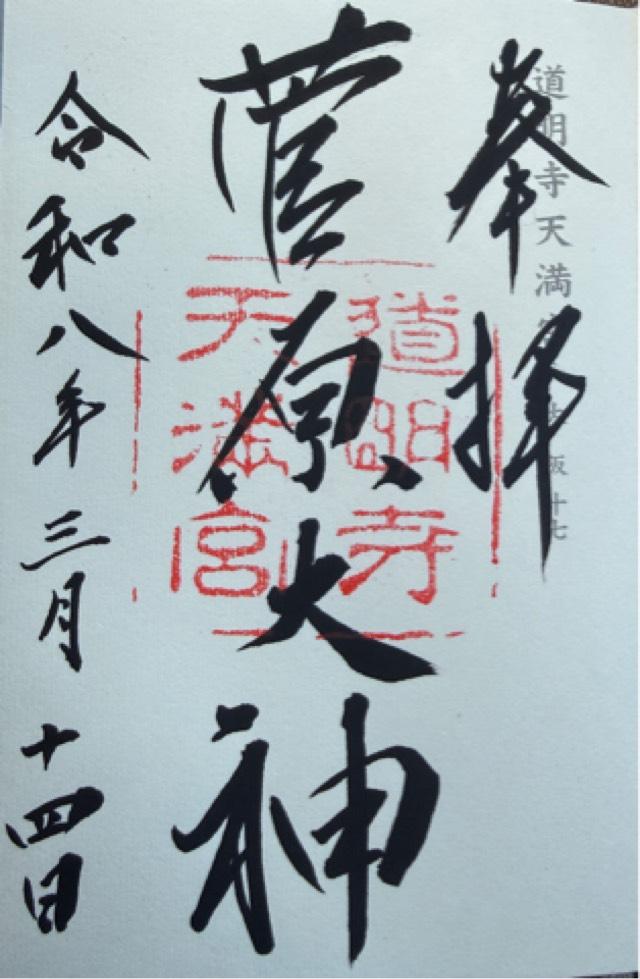 奉拝
道明寺天満宮
菅原大神
道明寺
天満宮
令和八年三月十四日